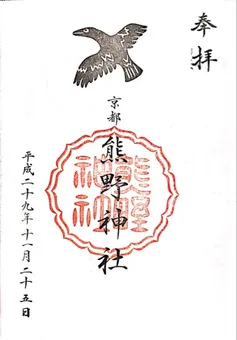 奉拝
京都
熊野神社
熊野神社
平成二十九年十一月二十五日